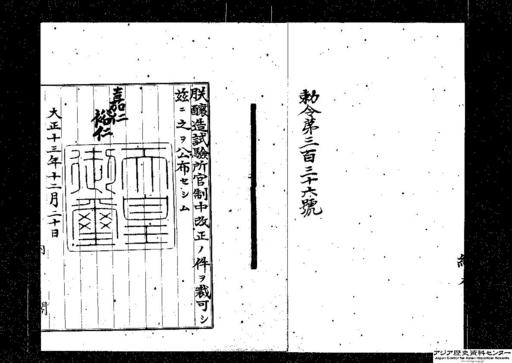 勅令第三百三十六號
朕釀造試驗所官制中改正ノ件ヲ裁可シ
茲ニ之ヲ公布セシム
嘉仁
裕仁
天皇
御璽
大正十三年十二月二十日
アジア歴史資料センター
Japan Center for Asian Historical Records